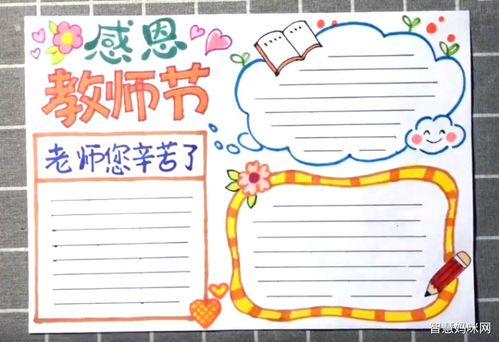 感恩
教师节
老师您辛苦了
智慧妈咪网